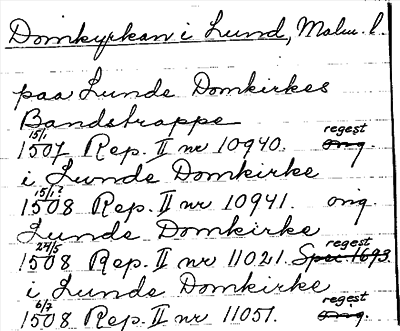 Domkyrkan i Lund, Malm. l.
paa Lunde Domkirkes
Bandstrappe
15/1 regest
1507 Rep. II nr 10940. orig.
i Lunde Domkirke
15/1?
1508 Rep. II nr 10941. orig.
Lunde Domkirke
24/5 regest
1508 Rep. II nr 11021. Spec 1693.
i Lunde Domkirke
6/7 regest
1508 Rep. II nr 11051. orig.